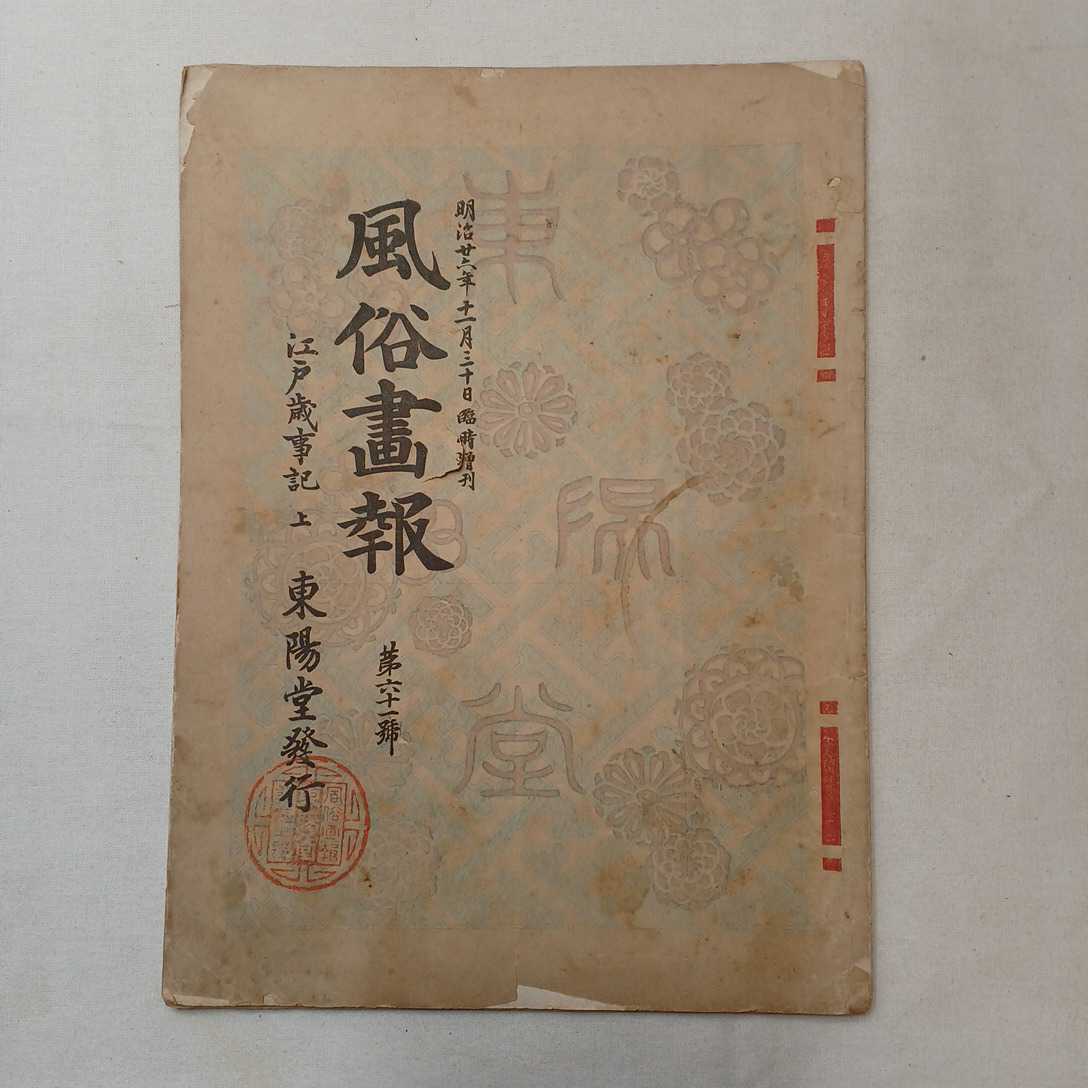 明治廿六年十一月三十日臨時增刊
風俗畫報
第六十一號
江戸歳事記 上
東陽堂發行
東陽堂